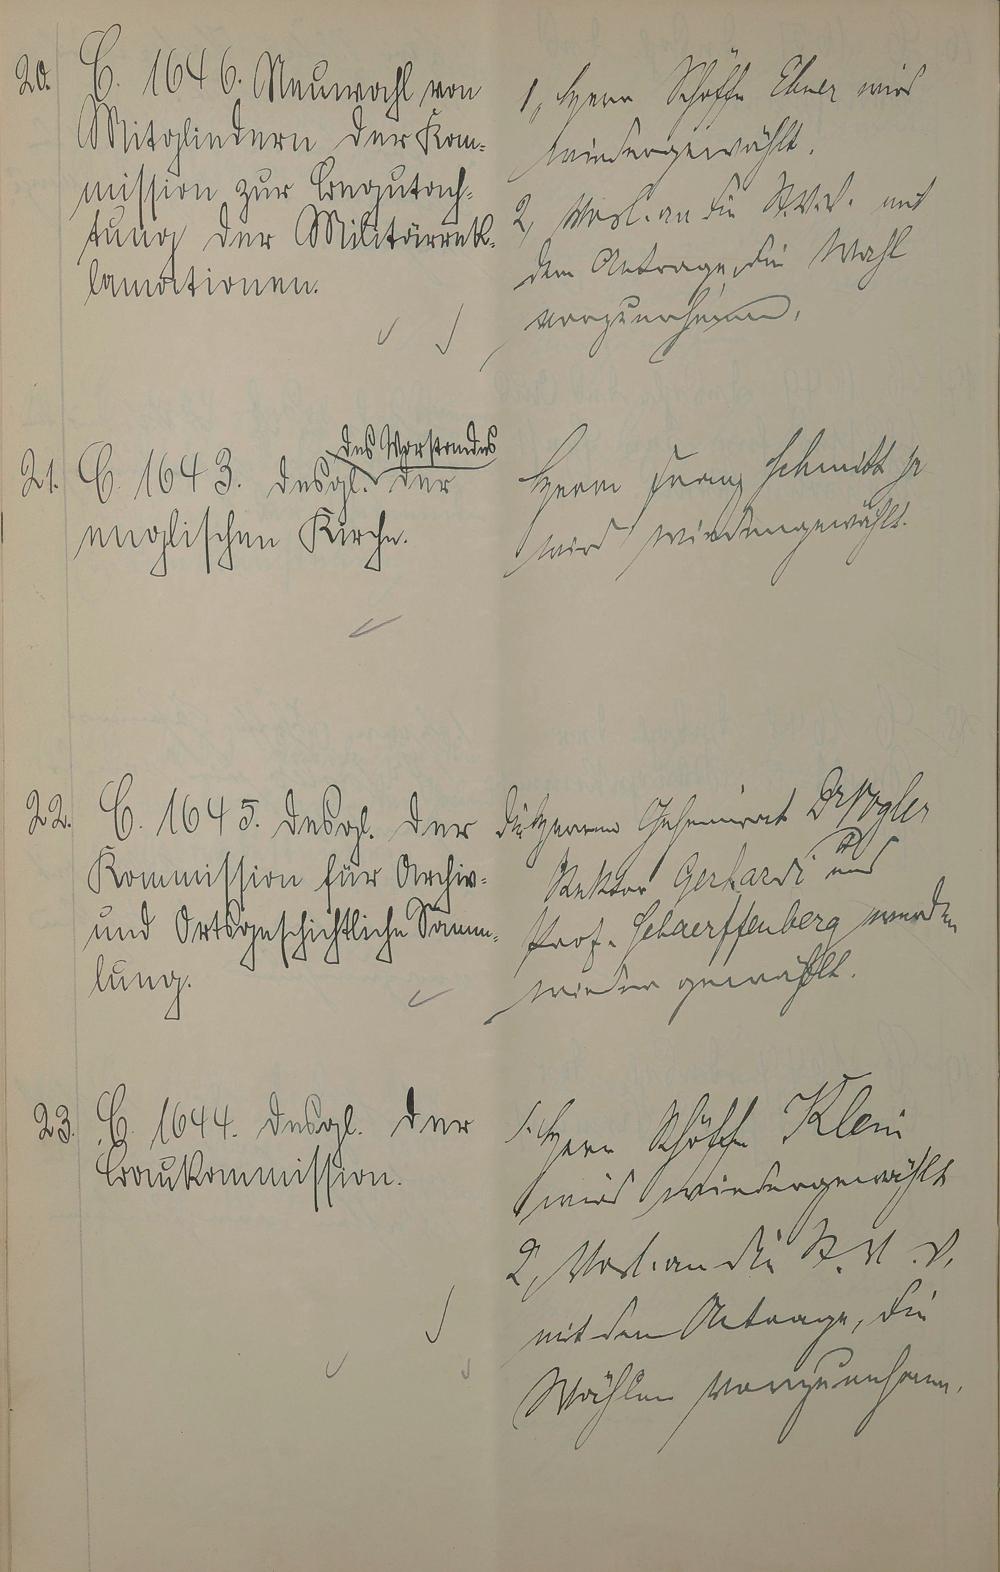 20.
C. 1646. Neuwahl von
Mitgliedern der Kom-
mission zur Begutach-
tung der Militärrek-
lamationen.
1, Herr Schöffe Ebner wird
wiedergewählt.
2, Vorl. an die St.V.V. mit
dem Antrage, die Wahl
vorzunehmen.
21.
C. 1643. desgl. des Vorstandes der
englischen Kirche.
Herr Franz Schmidt jr
wird wiedergewählt.
22.
C. 1645. desgl. der
Kommission für Archiv-
und Ortsgeschichtliche Samm-
lung.
die Herren Geheimrat Dr Vogler
Rektor Gerhardi und
Prof. Schaerffenberg werden
wieder gewählt.
23.
C. 1644. desgl. der
Baukommission.
1. Herr Schöffe Klein
wird wiedergewählt
2, Vorl. an die St. V. V.
mit dem Antrage, die
Wahlen vorzunehmen.